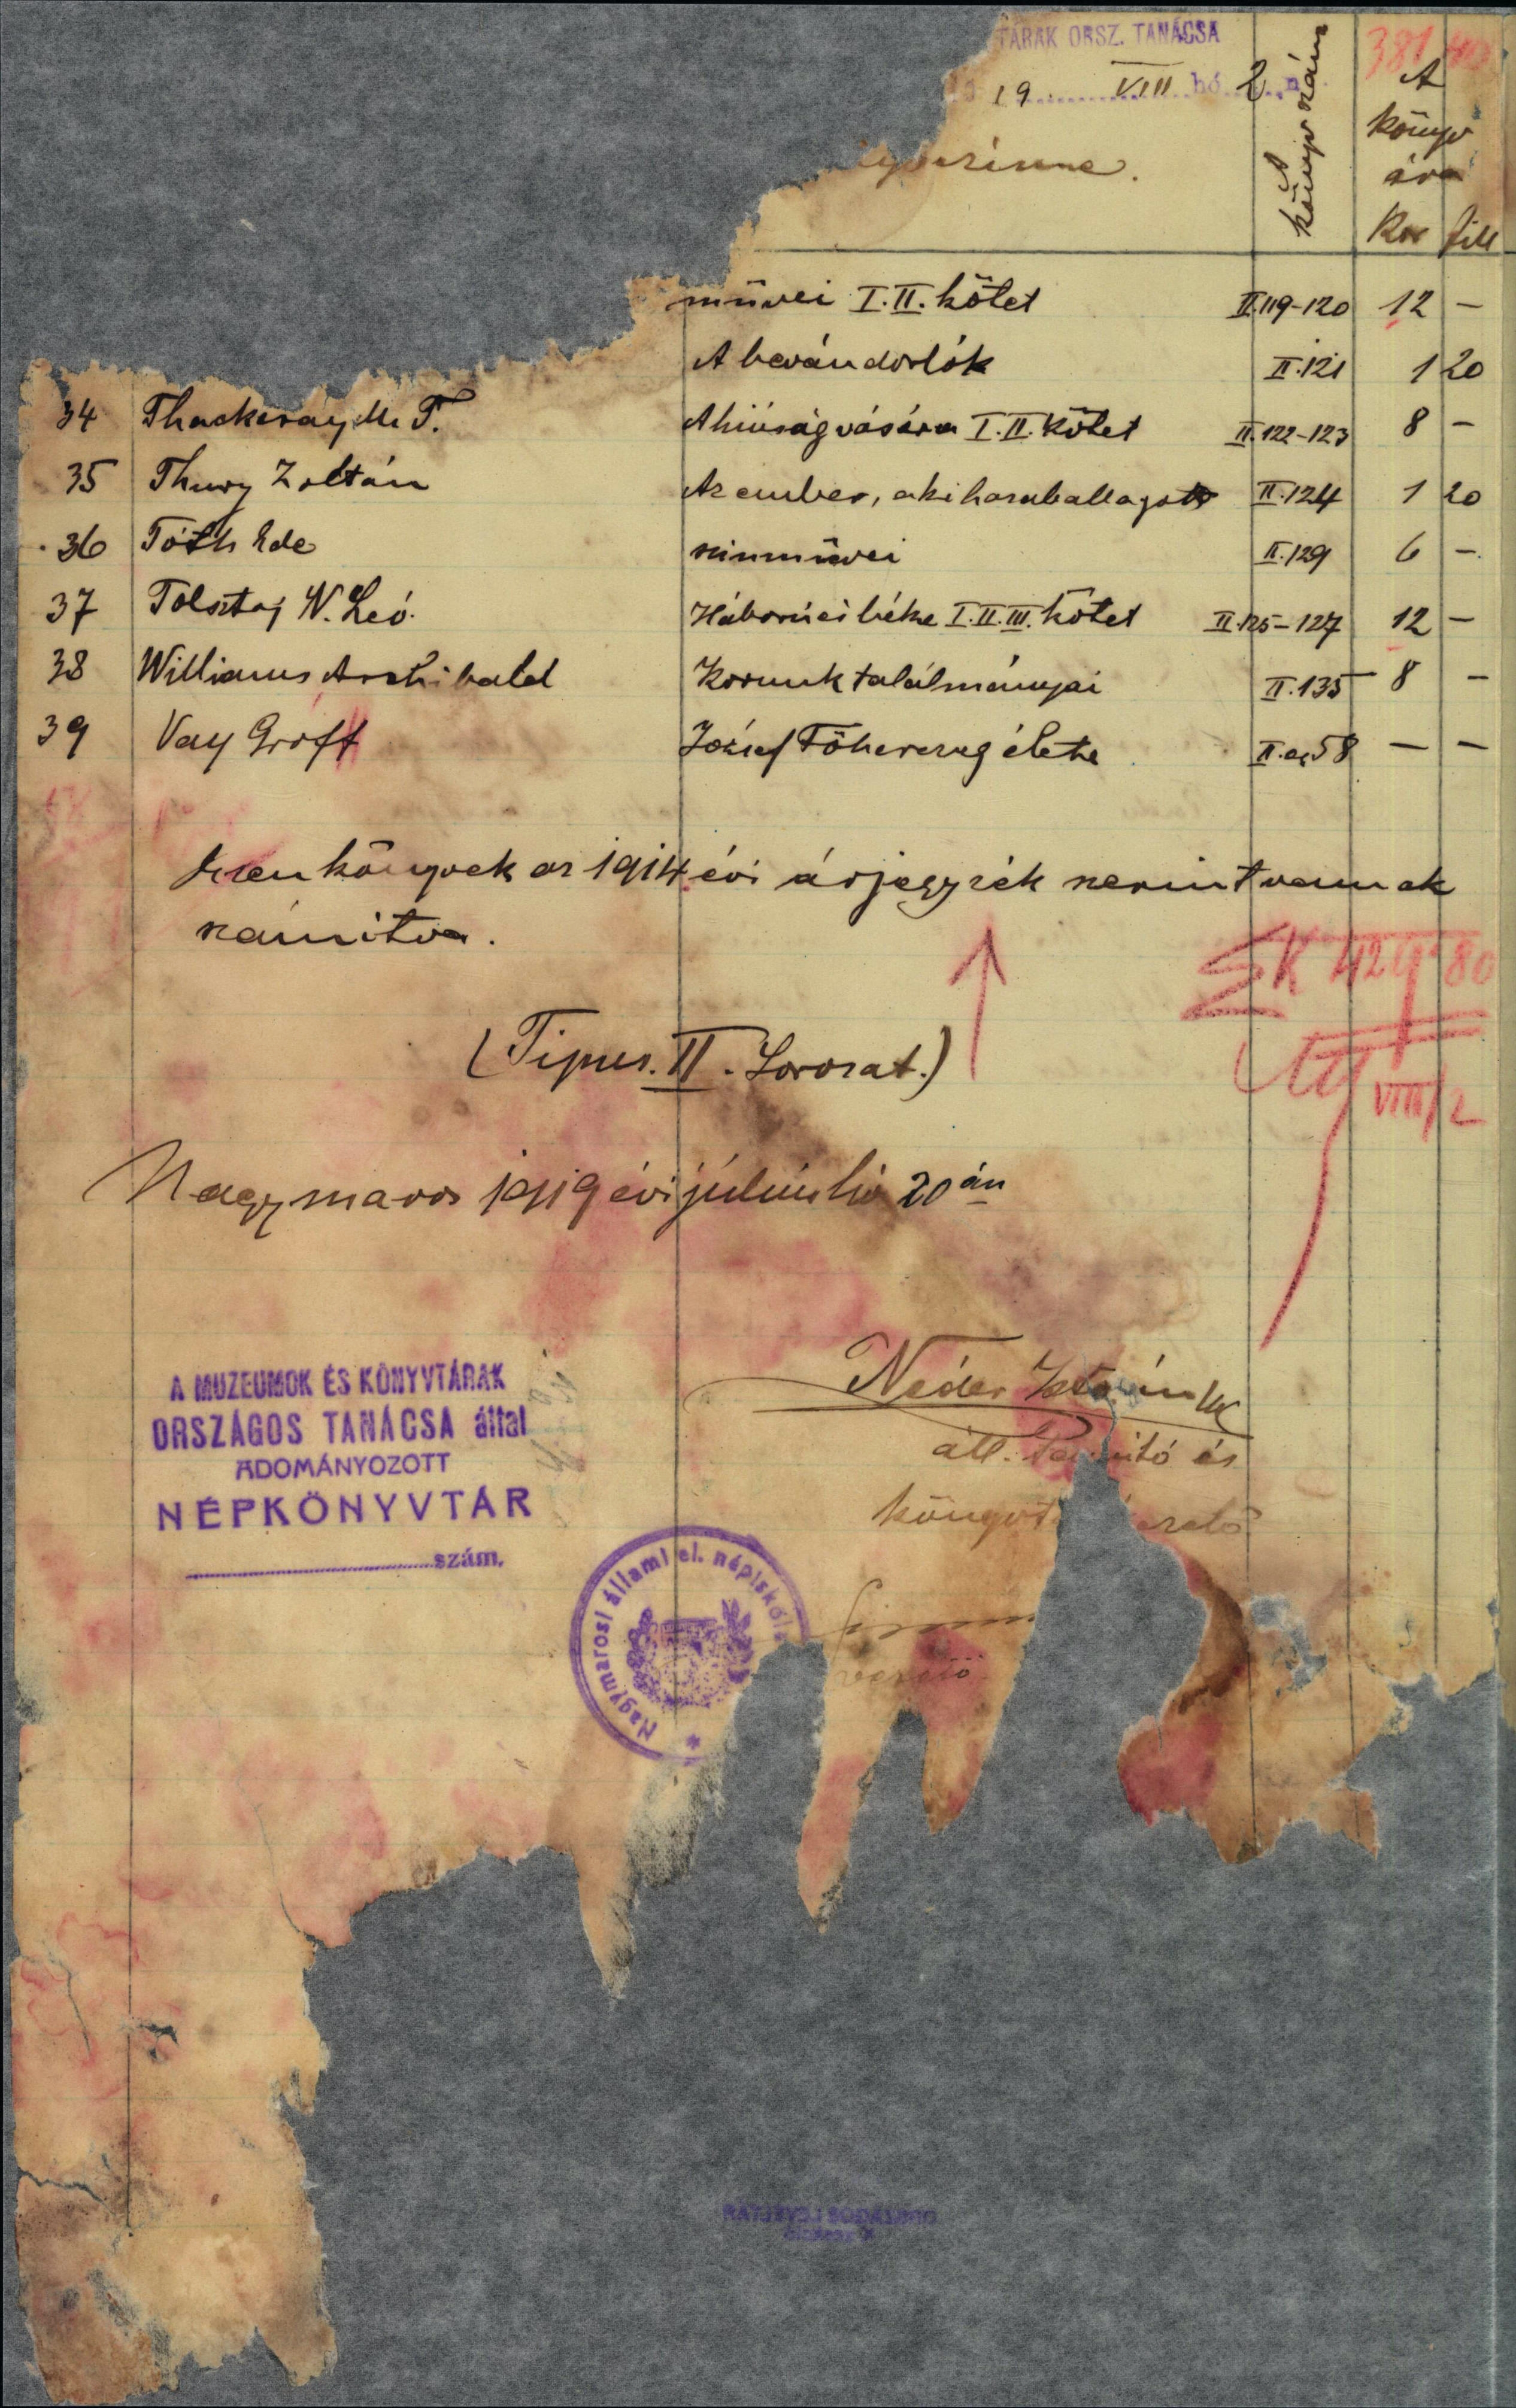 TÁRAK ORSZ. TANÁCSA
19 VIII hó 2 n
A könyv szám
381 40
A
könyv
ára
Kor fill
művei I. II. kötet II.119-120 12 —
A bevándorlók II.121 1 20
34 Thackeray M. T. A hiúság vására I. II. kötet II.122-123 8 —
35 Thury Zoltán Az ember, aki hazaballagott II.124 1 20
36 Tóth Ede szinművei II.129 6 —
37 Tolsztoj N. Leó. Háború és béke I. II. III. kötet II.125-127 12 —
38 Williams Archibald Korunk találmányai II.135 8 —
39 Vay Gróff József Főherczeg élete II. a, 58 — —
Ezen könyvek az 1914 évi árjegyzék szerint vannak
számitva.
ΣK 429 80
(Tipus. II. Sorozat.)
VIII/2
Nagymaros 1919 évi július hó 20 án
Néder István
áll. Tanitó és
A MUZEUMOK ÉS KÖNYVTÁRAK
ORSZÁGOS TANÁCSA által
ADOMÁNYOZOTT
NÉPKÖNYVTÁR
szám.
Nagymarosi állami el. népiskola
vezető